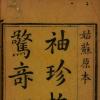 姑蘇原本
袖珍
驚奇